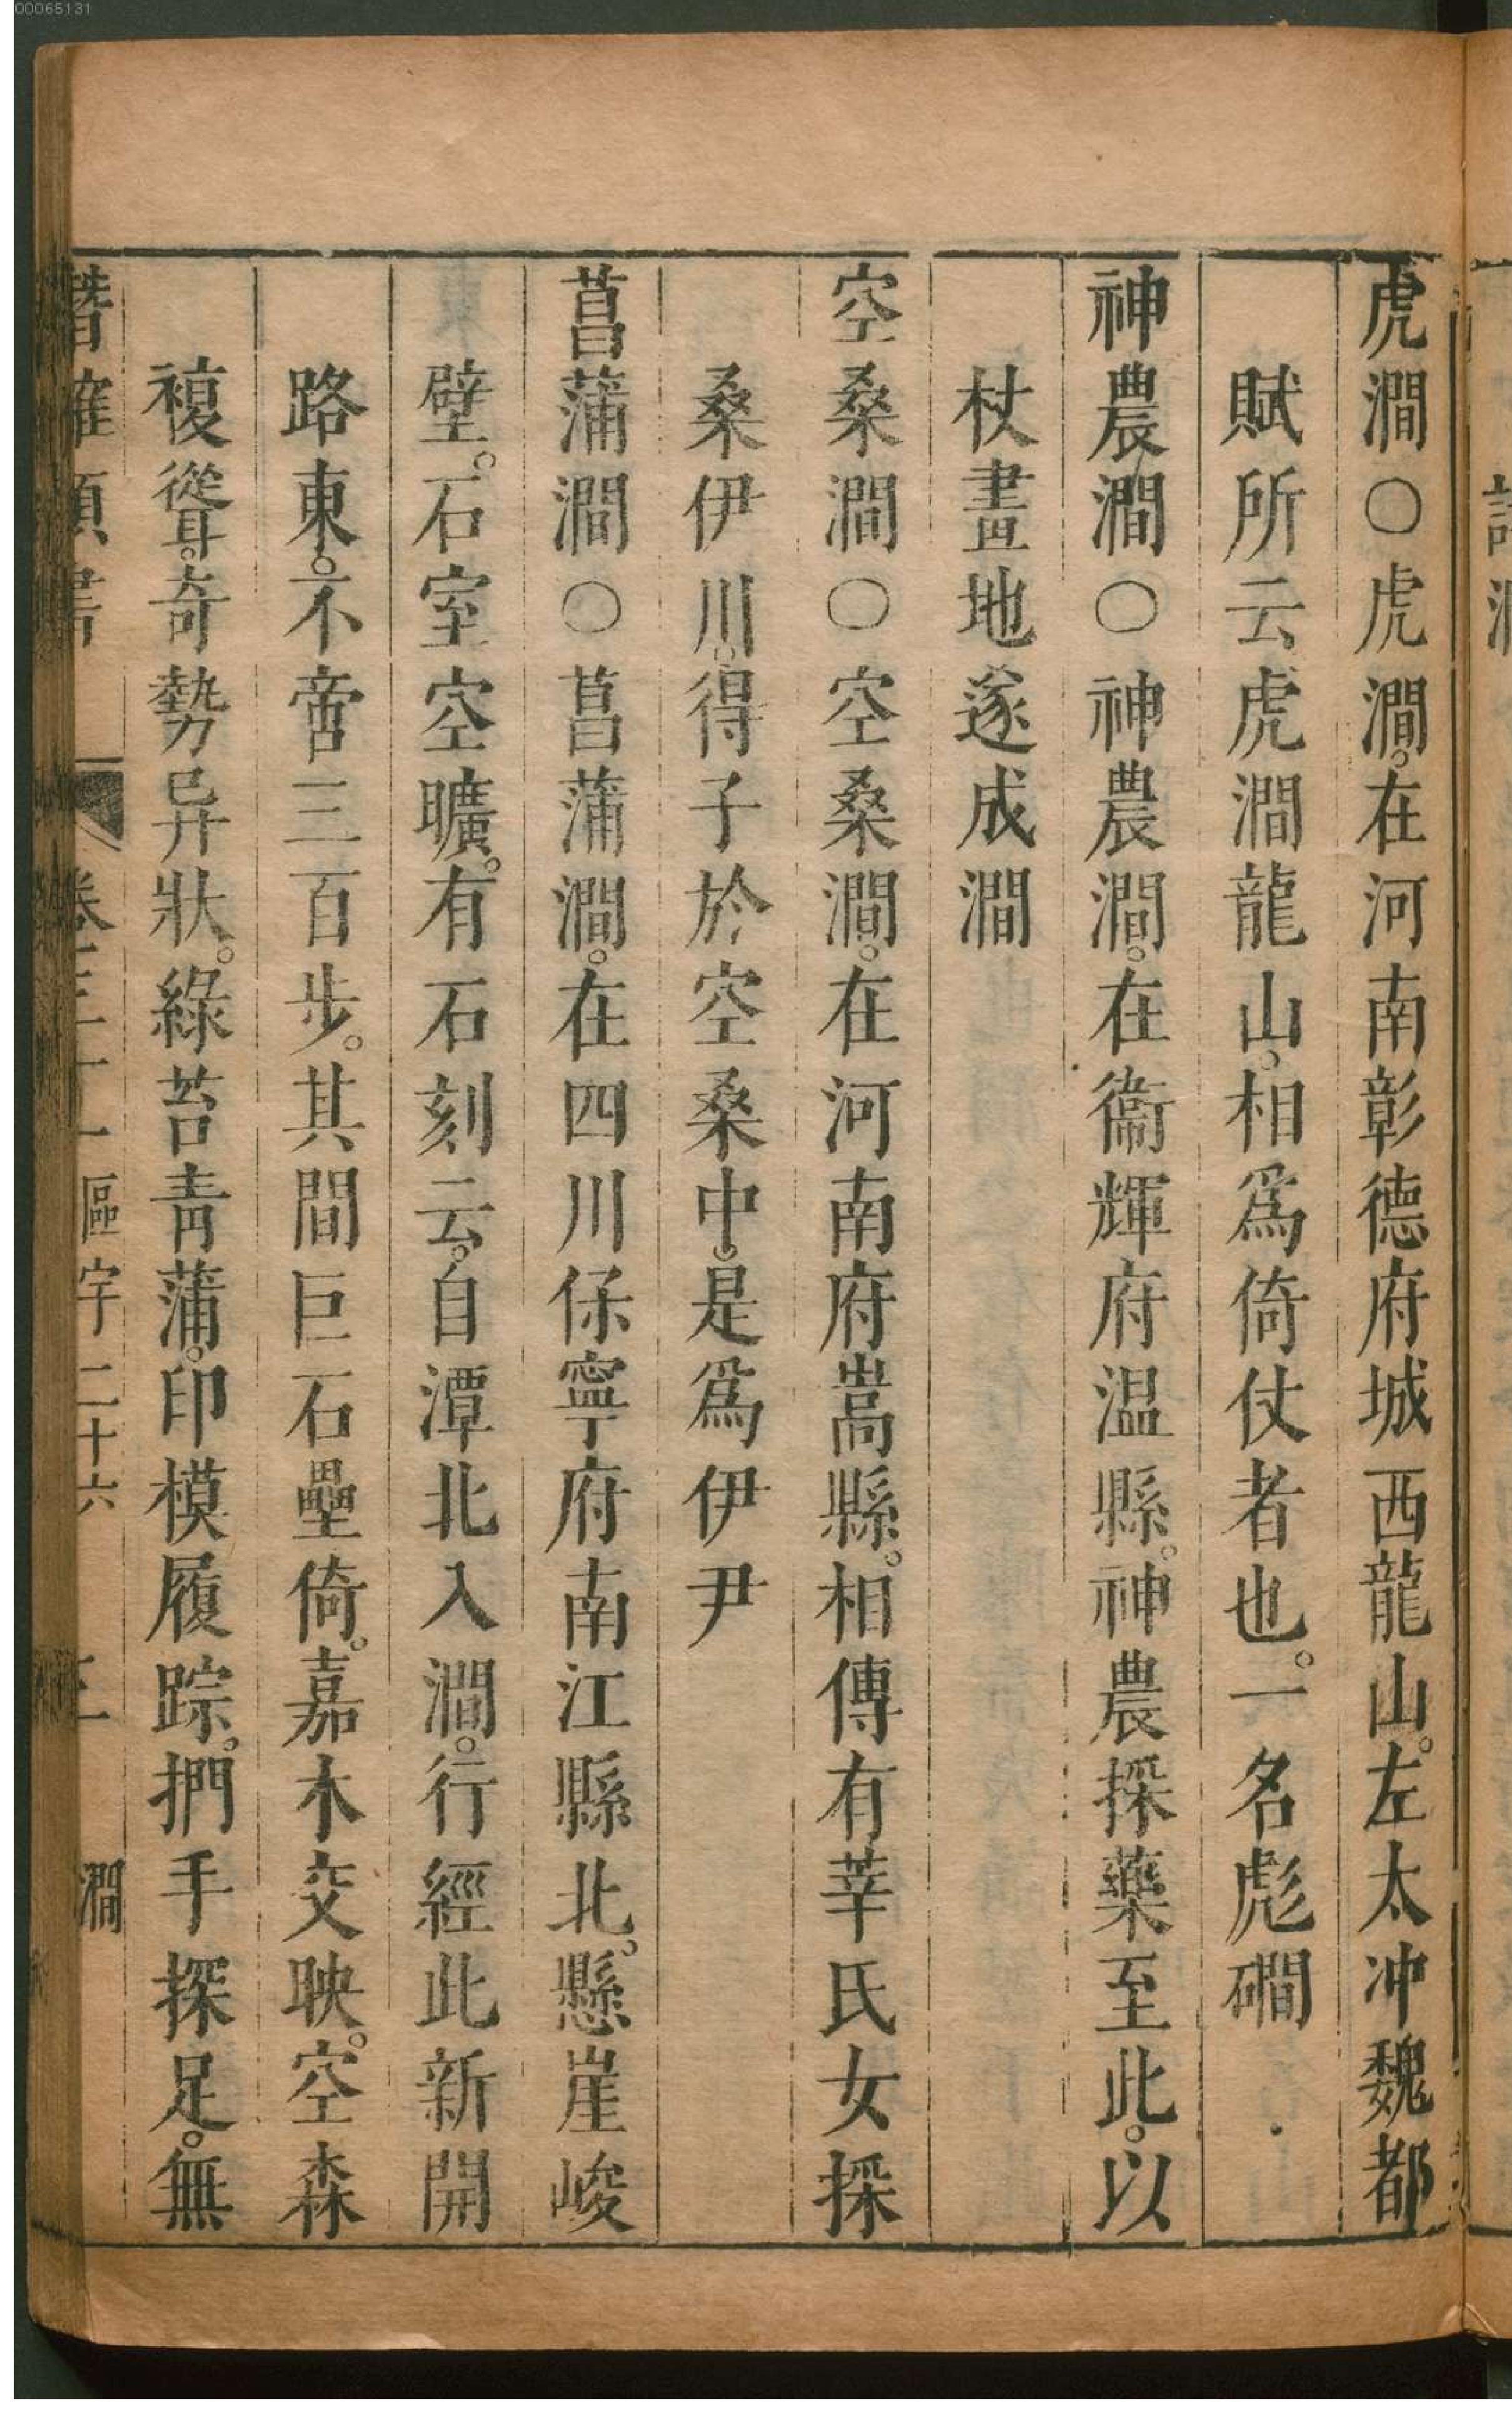 00065131
虎澗○虎澗。在河南彰德府城西龍山。左太冲魏都
賦所云虎澗龍山。相爲倚仗者也。一名彪磵
神農澗○神農澗。在衞輝府温縣。神農採藥至此。以
杖畫地遂成澗
空桑澗○空桑澗。在河南府嵩縣。相傳有莘氏女採
桑伊川。得子於空桑中。是爲伊尹
菖蒲澗○菖蒲澗。在四川保寧府南江縣北。懸崖峻
壁。石室空曠。有石刻云。自潭北入澗。行經此新開
路東。不啻三百步。其間巨石壘倚。嘉木交映。空森
複聳。奇勢异狀。綠苔靑蒲。印模履踪。捫手探足。無
潛確類書 卷三十一 區宇二十六 澗